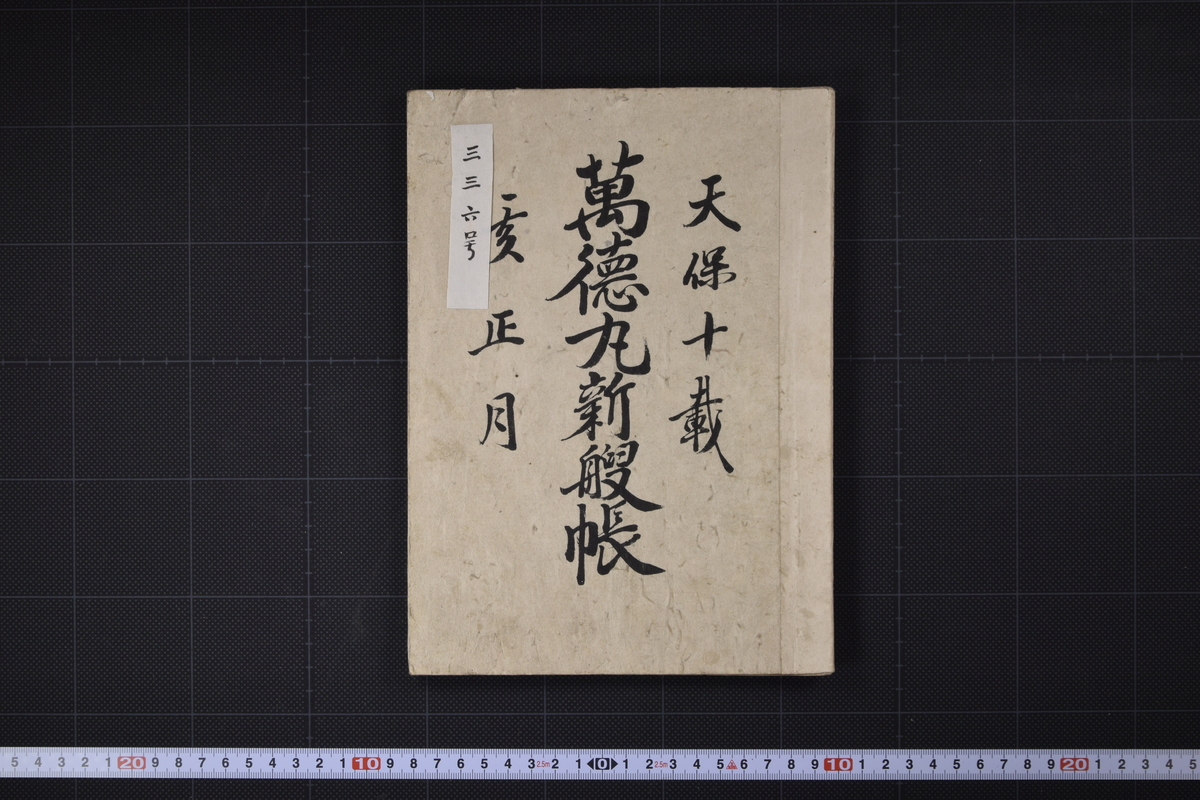 天保十載
萬德丸新艘帳
亥正月
三三六号
5 4 3 2 1 20 9 8 7 6 5 4 3 2 1 10 9 8 7 6 5 4 3 2.5m 2 1 0 1 2 2.5m 3 4 5 6 7 8 9 10 1 2 3 4 5 6 7 8 9 20 1 2 3 4 5